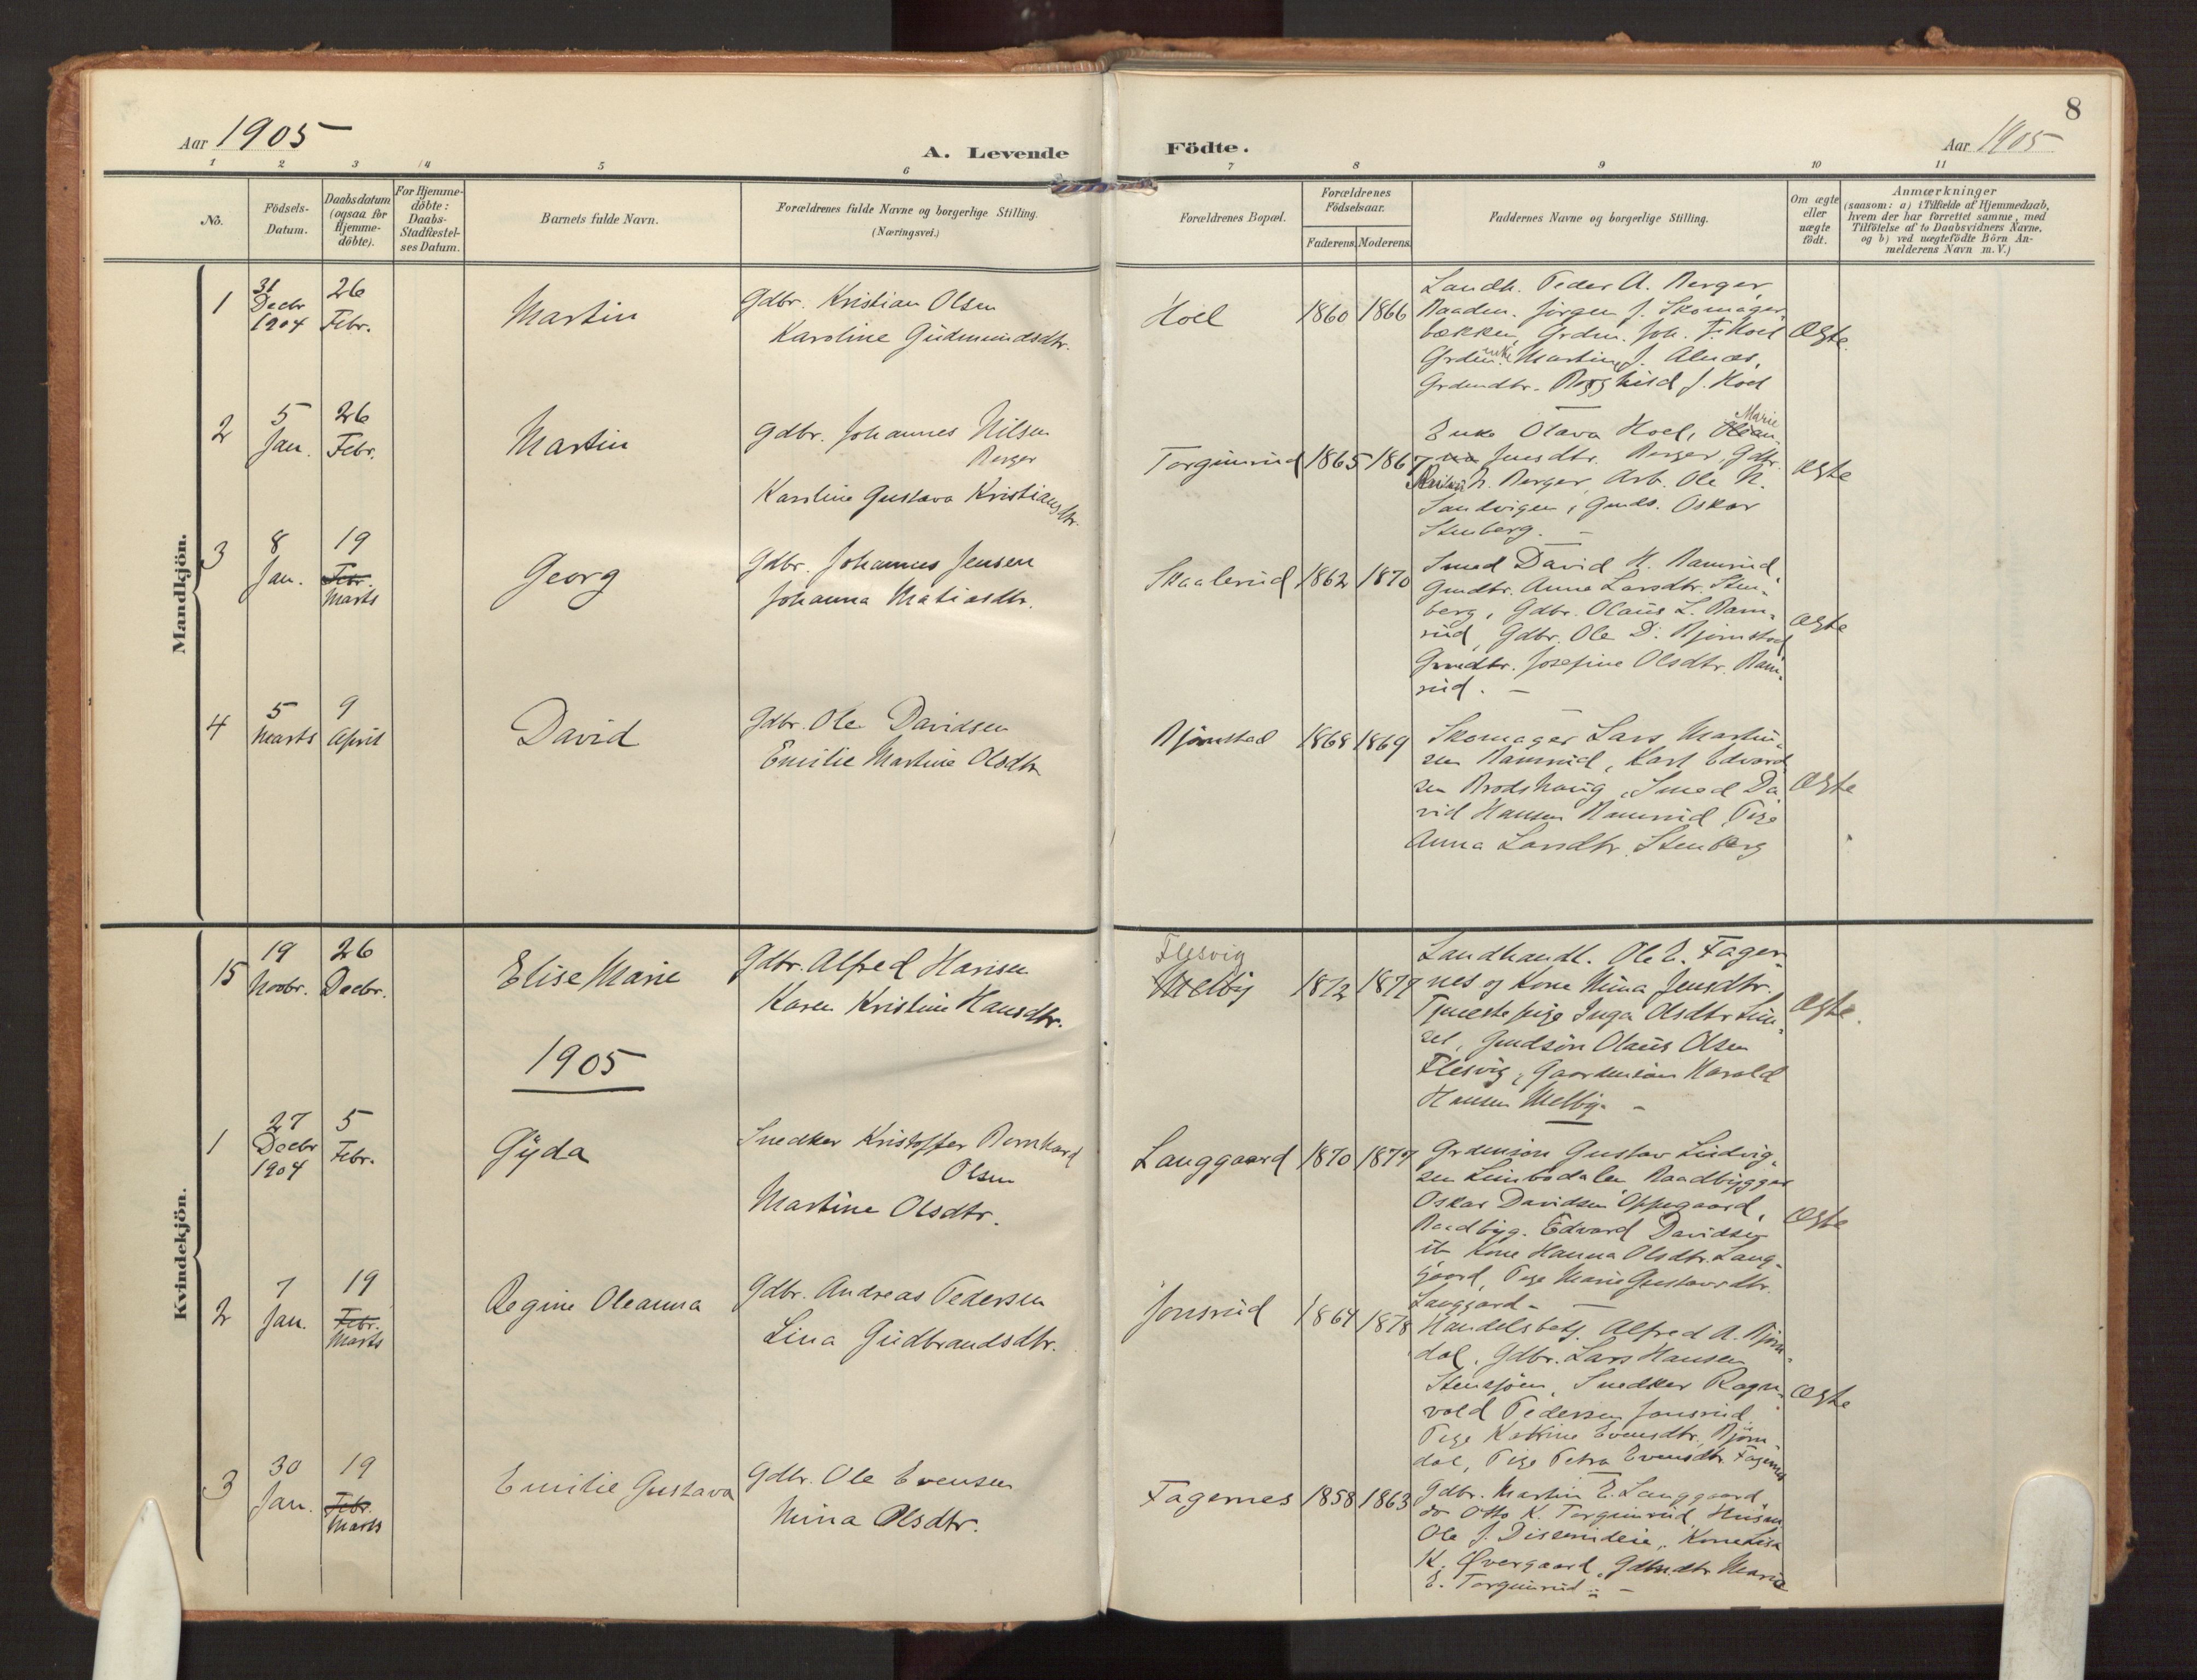 8
Aar 1905
A. Levende Födte.
Aar 1905
1 2 3 4 5 6 7 8 9 10 11
Nö.
Födsels-
Datum.
Daabsdatum
(ogsaa for
Hjemme-
döbte).
For Hjemme-
döbte:
Daabs-
Stadfæstel-
ses Datum.
Barnets fulde Navn.
Forældrenes fulde Navne og borgerlige Stilling.
(Næringsvei.)
Forældrenes Bopæl.
Forældrenes
Födselsaar.
Faderens. Moderens.
Faddernes Navne og borgerlige Stilling.
Om ægte
eller
uægte
födt.
Anmærkninger
(saasom: a) i Tilfælde af Hjemmedaab,
hvem der har forrettet samme, med
Tilföielse af to Daabsvidners Navne,
og b) ved uægtefödte Börn An-
melderens Navn m. V.)
Mandkjön.
1
31
Decbr
1904
26
Febr.
Martin
Gdbr. Kristian Olsen
Karoline Gudmundsdtr.
Hoel
1860 1866
Landh. Peder A. Berger,
Baadm. Jörgen J. Skomager-
bækken, Grdm. Joh. J. Hoel
Grdm.enke Martine J. Alnæs,
Grdmdtr. Borghild J. Hoel
Ægte.
2
5
Jan.
26
Febr.
Martin
Gdbr. Johannes Nilsen
Berger
Karoline Gustava Kristiansdtr.
Torgunrud
1865 1867
Marie
Enke Olava Hoel,
Jensdtr. Berger, Gdbr.
N. Berger, Arb. Ole N.
Sandvigen, Gmds. Oskar
Stenberg. –
Ægte
3
8
Jan.
19
Febr.
Marts
Georg
Gdbr. Johannes Jensen
Johanna Matiasdtr.
Skaalerud
1862 1870
Smed David H. Ramrud,
Gmdtr. Anna Larsdtr. Sten-
berg, Gdbr. Olaus L. Ram-
rud, Gdbr. Ole D. Bjørnstad
Gmdtr. Josefine Olsdtr. Ram-
rud. –
Ægte
4
5
Marts
9
April
David
Gdbr. Ole Davidsen
Emilie Martine Olsdtr
Bjørnstad
1868 1869
Skomager Lars Martin-
sen Ramrud, Karl Edvard-
sen Brodshaug, Smed Da-
vid Hansen Ramrud, Pige
Anna Larsdtr. Stenberg
Ægte
Kvindekjön.
15
19
Novbr.
26
Decbr.
Elise Marie
Gdbr. Alfred Hansen
Karen Kristine Hansdtr.
Flesvig
Melby
1872 1877
Landhandl. Ole E. Fager-
nes og Kone Mina Jensdtr.
Tjenestepige Inga Olsdtr Lin-
set, Gmdsön Olaus Olsen
Flesvig, Gaardmsön Harald
Hansen Melby. –
Ægte.
1905
1
27
Decbr
1904
5
Febr.
Gyda
Snedker Kristoffer Bernhard
Olsen
Martina Olsdtr.
Langgaard
1870 1877
Grdmsön Gustav Ludvig-
sen Limbodalen, Baadbygger
Oskar Davidsen Oppegaard,
Baadbyg. Edvard Davidsen
Kone Hanna Olsdtr. Lang-
gaard, Pige Marie Gustavsdtr.
Langgaard. –
Ægte
2
7
Jan.
19
Febr.
Marts
Regine Oleanna
Gdbr. Andreas Pedersen
Lina Gudbrandsdtr.
Jonsrud
1864 1878
Handelsbetj. Alfred A. Bjørn-
dal, Gdbr. Lars Hansen
Stensjøen, Snedker Ragn-
vald Pedersen Jonsrud,
Pige Katrine Evensdtr. Bjørn-
dal, Pige Petra Evensdtr. Fagernes
Ægte
3
30
Jan.
19
Febr.
Marts
Emilie Gustava
Gdbr. Ole Evensen
Mina Olsdtr.
Fagernes
1858 1863
Gdbr. Martin E. Langgaard,
do Otto K. Torgunrud, Husm.
Ole J. Disenrudeie, Kone Lisa
K. Øvergaard, Gdbrdtr Marie
E. Torgunrud. –